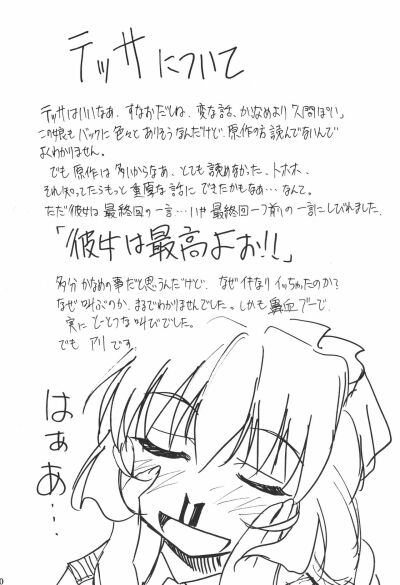 テッサについて
テッサはいいなあ。すなおだしね。変な話、かなめより人間ぽい。
この娘もバックに色々とありそうなんだけど原作の方読んでないんで
よくわかりません。
でも原作は多いからなあ、とても読めなかった、トホホ、
それ知ってたらもっと重厚な話にできたかもなあ…なんて。
ただ彼女は最終回の一言…いや最終回一つ前の一言にしびれました。
「彼女は最高よお!!」
多分かなめの事だと思うんだけど、なぜ件なりイッちゃったのか?
なぜ叫ぶのか、まるでわかりませんでした。しかも鼻血ブーで、
実にとーとつな叫びでした。
でもアリです。
はぁあ…
0